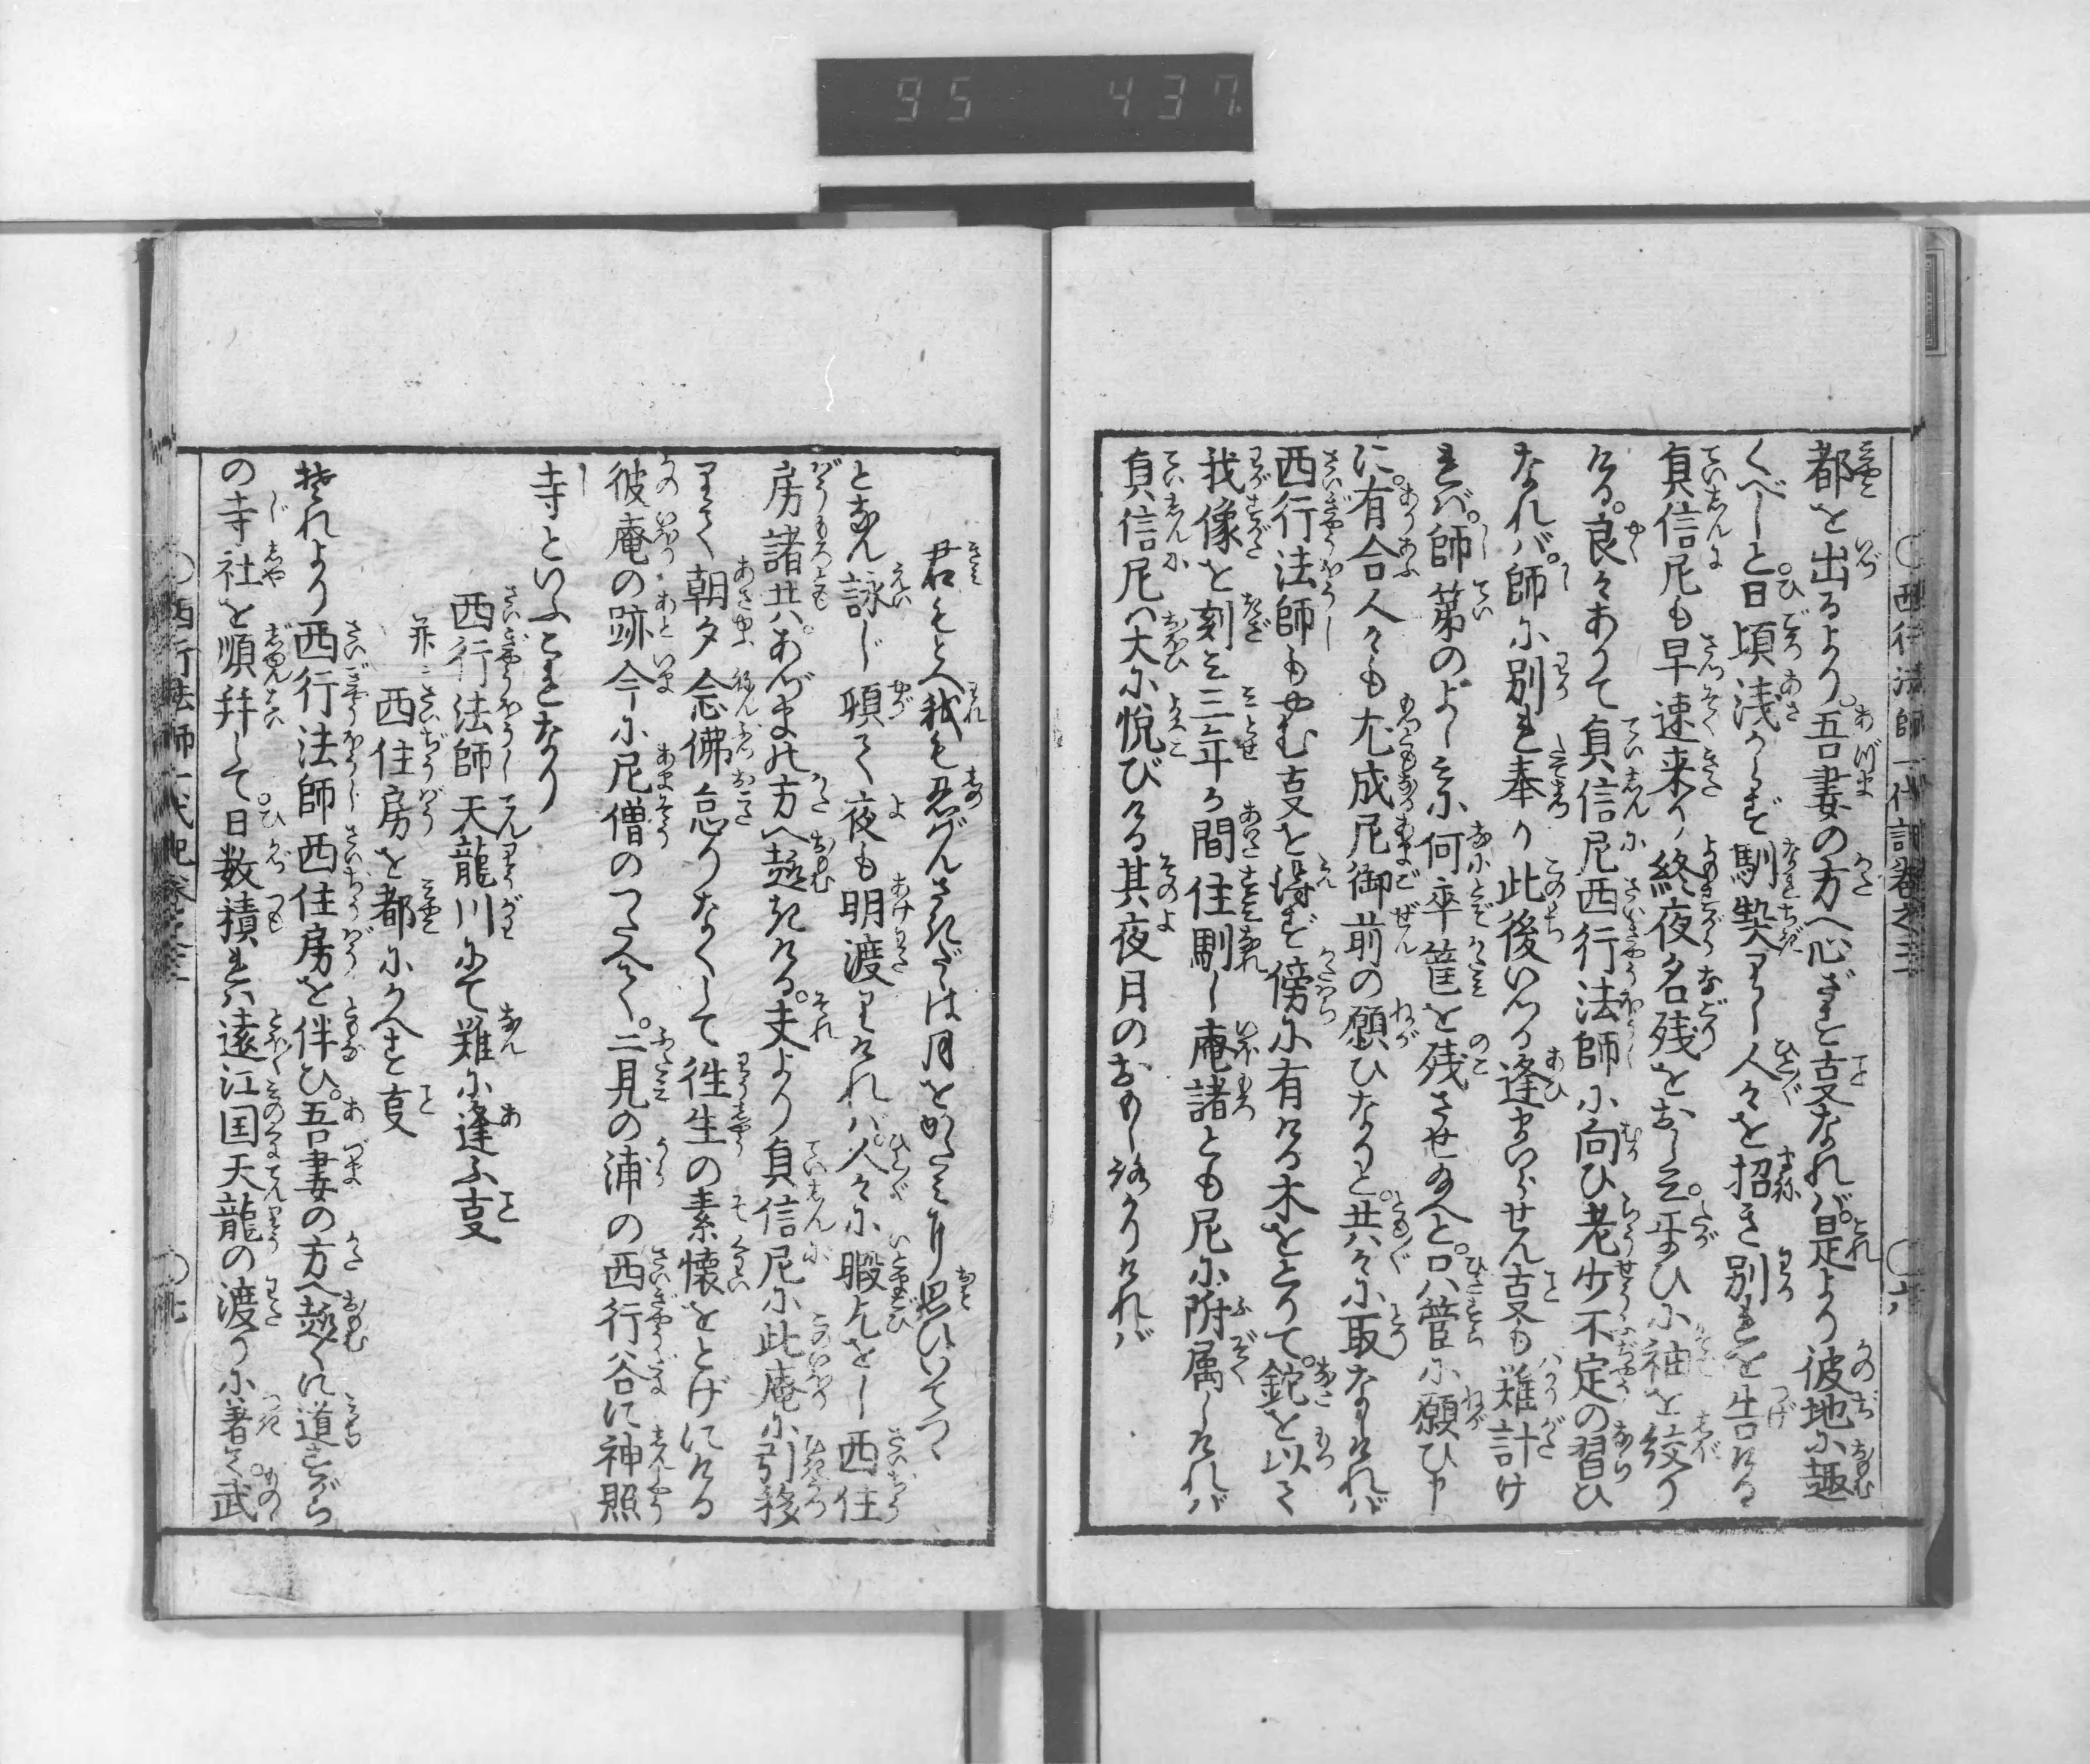 95 437
西行法師一代記巻之三 ○六
都を出るより。吾妻の方へ心ざす事なれバ。是より彼地に趣
くべしと。日頃浅からず馴契りし人々を招き別れを告ける
貞信尼も早速来り終夜名残をおしみ。互ひに袖を絞り
ける。良々ありて貞信尼西行法師に向ひ老少不定の習ひ
なれバ。師に別れ奉り此後いつか逢まいらせん事も難計け
れバ。師第のよしみに何卒筐を残させ給へと。只管に願ひ申
に。有合人々も尤成尼御前の願ひなりと。共々に取なしけれバ
西行法師もやむ事を得ず傍に有ける木をとりて。鉈を以て
我像を刻み三年が間住馴し庵諸とも尼に附属しけれバ
貞信尼ハ大に悦びける其夜月のおもしろかりけれバ
君もとへ我も忍ばんさきだゝは月をかたみに思ひいでつゝ
となん詠じ頓て夜も明渡りけれバ。人々に暇乞をし西住
房諸共。あづまの方へ趣きける。夫より貞信尼に此庵に引移
りて朝夕念佛怠りなくして往生の素懐をとげにける
彼庵の跡今に尼僧のつたへて。二見の浦の西行谷に神照
寺といふこれなり
西行法師天龍川にて難に逢ふ事
并ニ西住房を都にかへす事
それより西行法師西住房を伴ひ。吾妻の方へ趣くに道すがら
の寺社を順拝して。日数積れバ遠江国天龍の渡りに著て。武
西行法師一代記巻之三 ○七